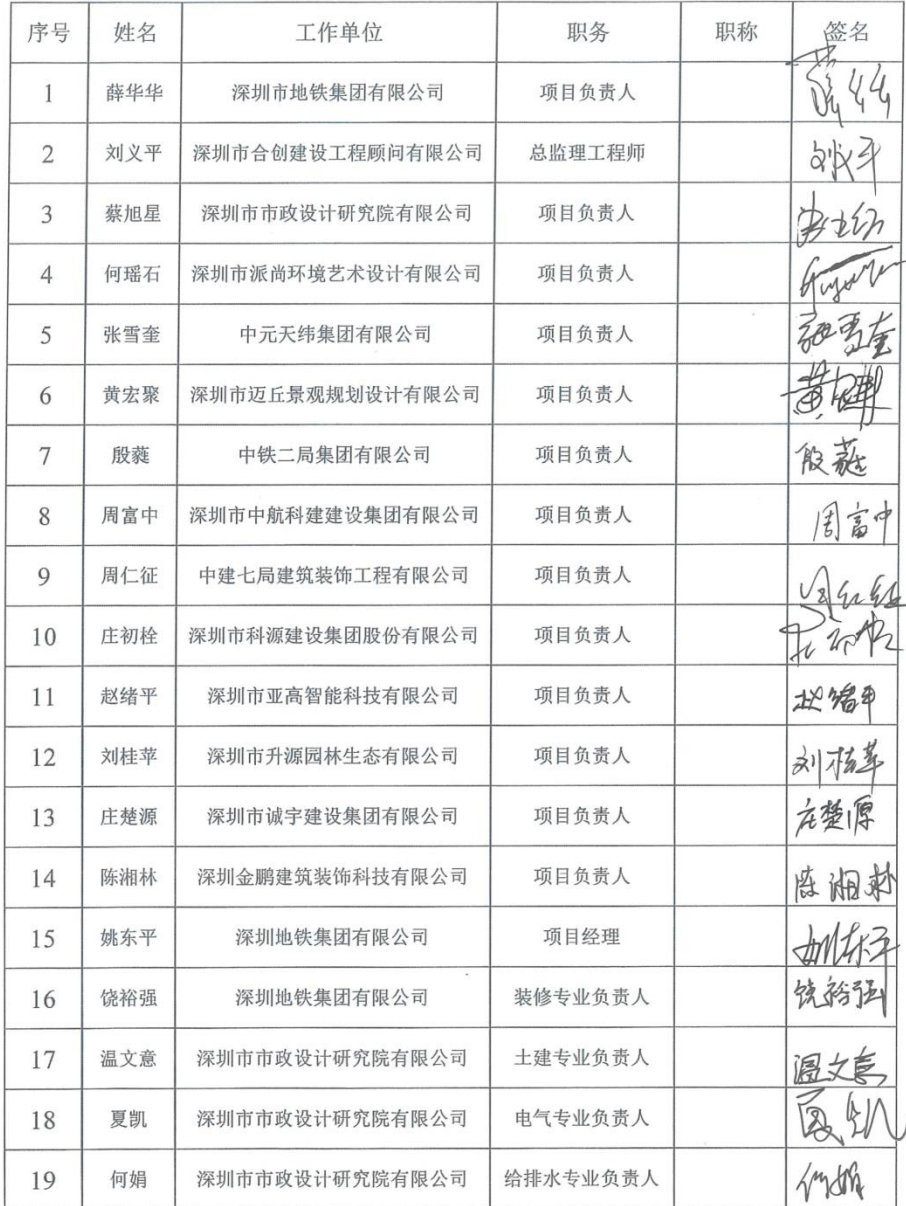 序号 姓名 工作单位 职务 职称 签名
1 薛华华 深圳市地铁集团有限公司 项目负责人
2 刘义平 深圳市合创建设工程顾问有限公司 总监理工程师 刘义平
3 蔡旭星 深圳市市政设计研究院有限公司 项目负责人
4 何瑶石 深圳市派尚环境艺术设计有限公司 项目负责人
5 张雪奎 中元天纬集团有限公司 项目负责人 张雪奎
6 黄宏聚 深圳市迈丘景观规划设计有限公司 项目负责人
7 殷蕤 中铁二局集团有限公司 项目负责人
8 周富中 深圳市中航科建建设集团有限公司 项目负责人 周富中
9 周仁征 中建七局建筑装饰工程有限公司 项目负责人
10 庄初栓 深圳市科源建设集团股份有限公司 项目负责人
11 赵绪平 深圳市亚高智能科技有限公司 项目负责人 赵绪平
12 刘桂苹 深圳市升源园林生态有限公司 项目负责人 刘桂苹
13 庄楚源 深圳市诚宇建设集团有限公司 项目负责人 庄楚源
14 陈湘林 深圳金鹏建筑装饰科技有限公司 项目负责人 陈湘林
15 姚东平 深圳地铁集团有限公司 项目经理 姚东平
16 饶裕强 深圳地铁集团有限公司 装修专业负责人 饶裕强
17 温文意 深圳市市政设计研究院有限公司 土建专业负责人 温文意
18 夏凯 深圳市市政设计研究院有限公司 电气专业负责人 夏凯
19 何娟 深圳市市政设计研究院有限公司 给排水专业负责人 何娟